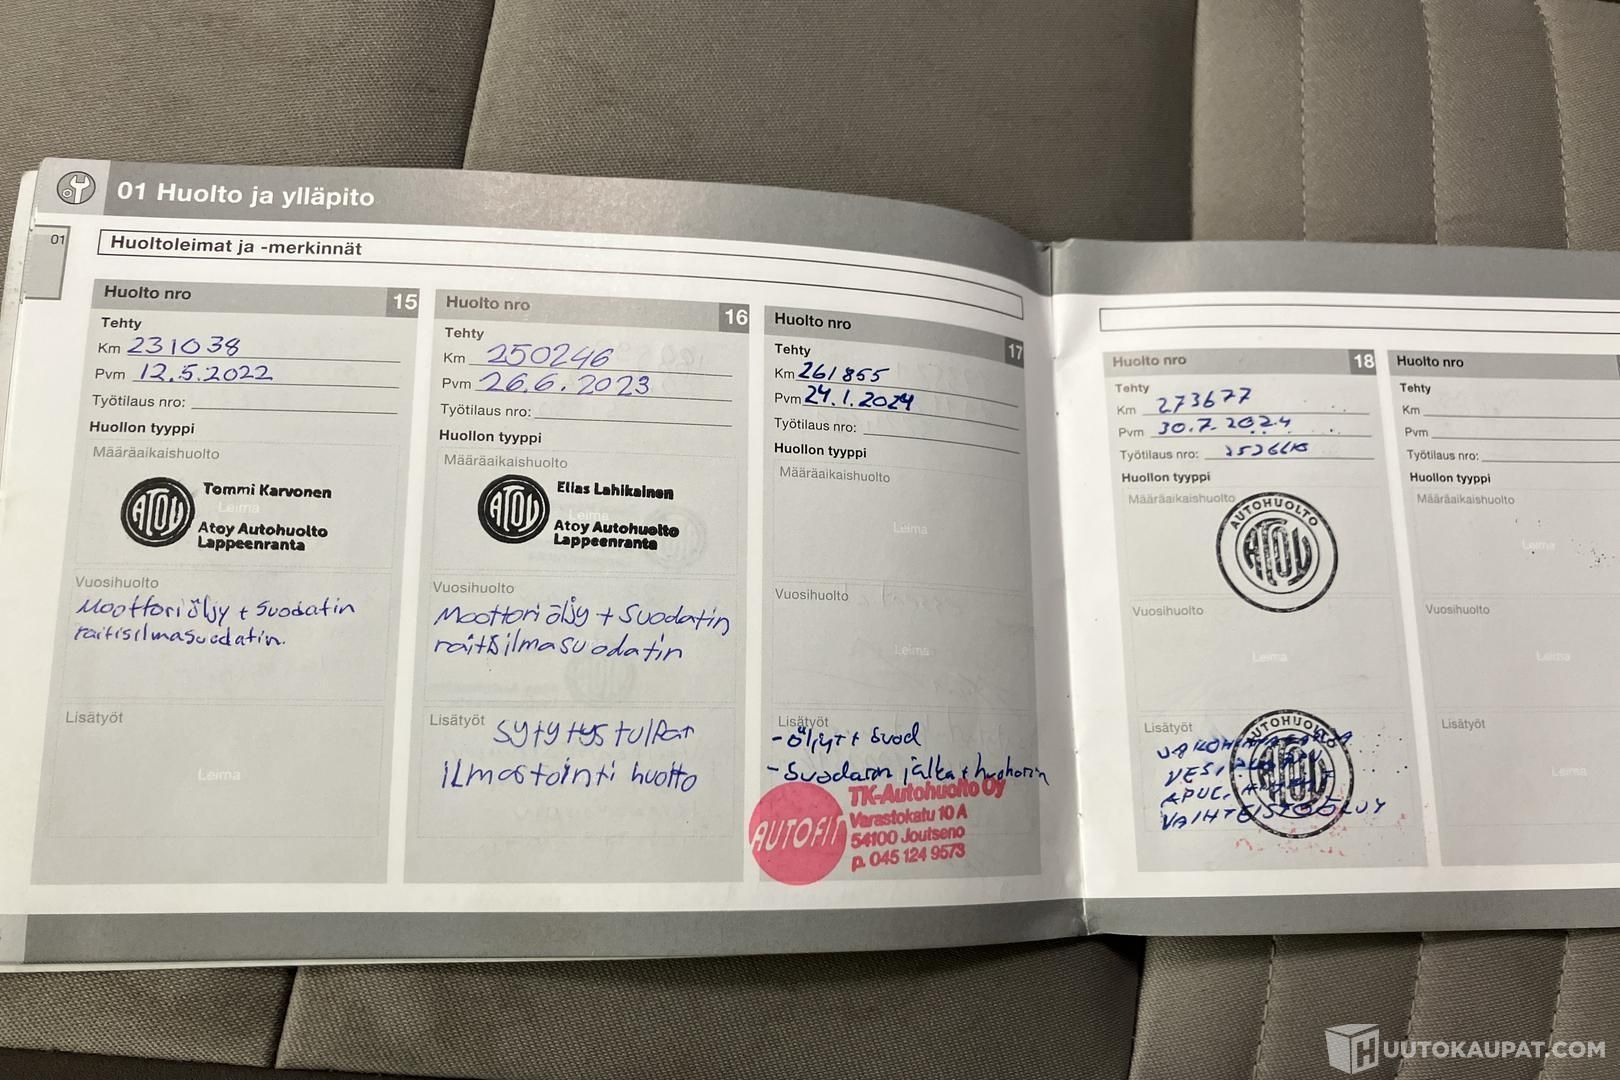 01 Huolto ja ylläpito
01
Huoltoleimat ja -merkinnät
Huolto nro 15
Tehty
Km 231038
Pvm 12.5.2022
Työtilaus nro:
Huollon tyyppi
Määräaikaishuolto
Leima
ATOY
Tommi Karvonen
Atoy Autohuolto
Lappeenranta
Vuosihuolto
Moottoriöljy + suodatin
raitisilmasuodatin.
Lisätyöt
Leima
Huolto nro 16
Tehty
Km 250246
Pvm 26.6.2023
Työtilaus nro:
Huollon tyyppi
Määräaikaishuolto
Leima
ATOY
Elias Lahikainen
Atoy Autohuolto
Lappeenranta
Vuosihuolto
Moottoriöljy + Suodatin
raitisilmasuodatin
Lisätyöt
sytytystulpat
ilmastointi huolto
Huolto nro 17
Tehty
Km 261855
Pvm 24.1.2024
Työtilaus nro:
Huollon tyyppi
Määräaikaishuolto
Leima
Vuosihuolto
Leima
Lisätyöt
- Öljyt + suod
- Suodatin jälka +
AUTOFIT
TK-Autohuolto Oy
Varastokatu 10 A
54100 Joutseno
p. 045 124 9573
Huolto nro 18
Tehty
Km 273677
Pvm 30.7.2024
Työtilaus nro:
Huollon tyyppi
Määräaikaishuolto
AUTOHUOLTO
ATOY
Vuosihuolto
Leima
Lisätyöt
AUTOHUOLTO
ATOY
VESIPUMPPU
VAIHTEISTOÖLJY
Huolto nro
Tehty
Km
Pvm
Työtilaus nro:
Huollon tyyppi
Määräaikaishuolto
Leima
Vuosihuolto
Leima
Lisätyöt
Leima
HUUTOKAUPAT.COM